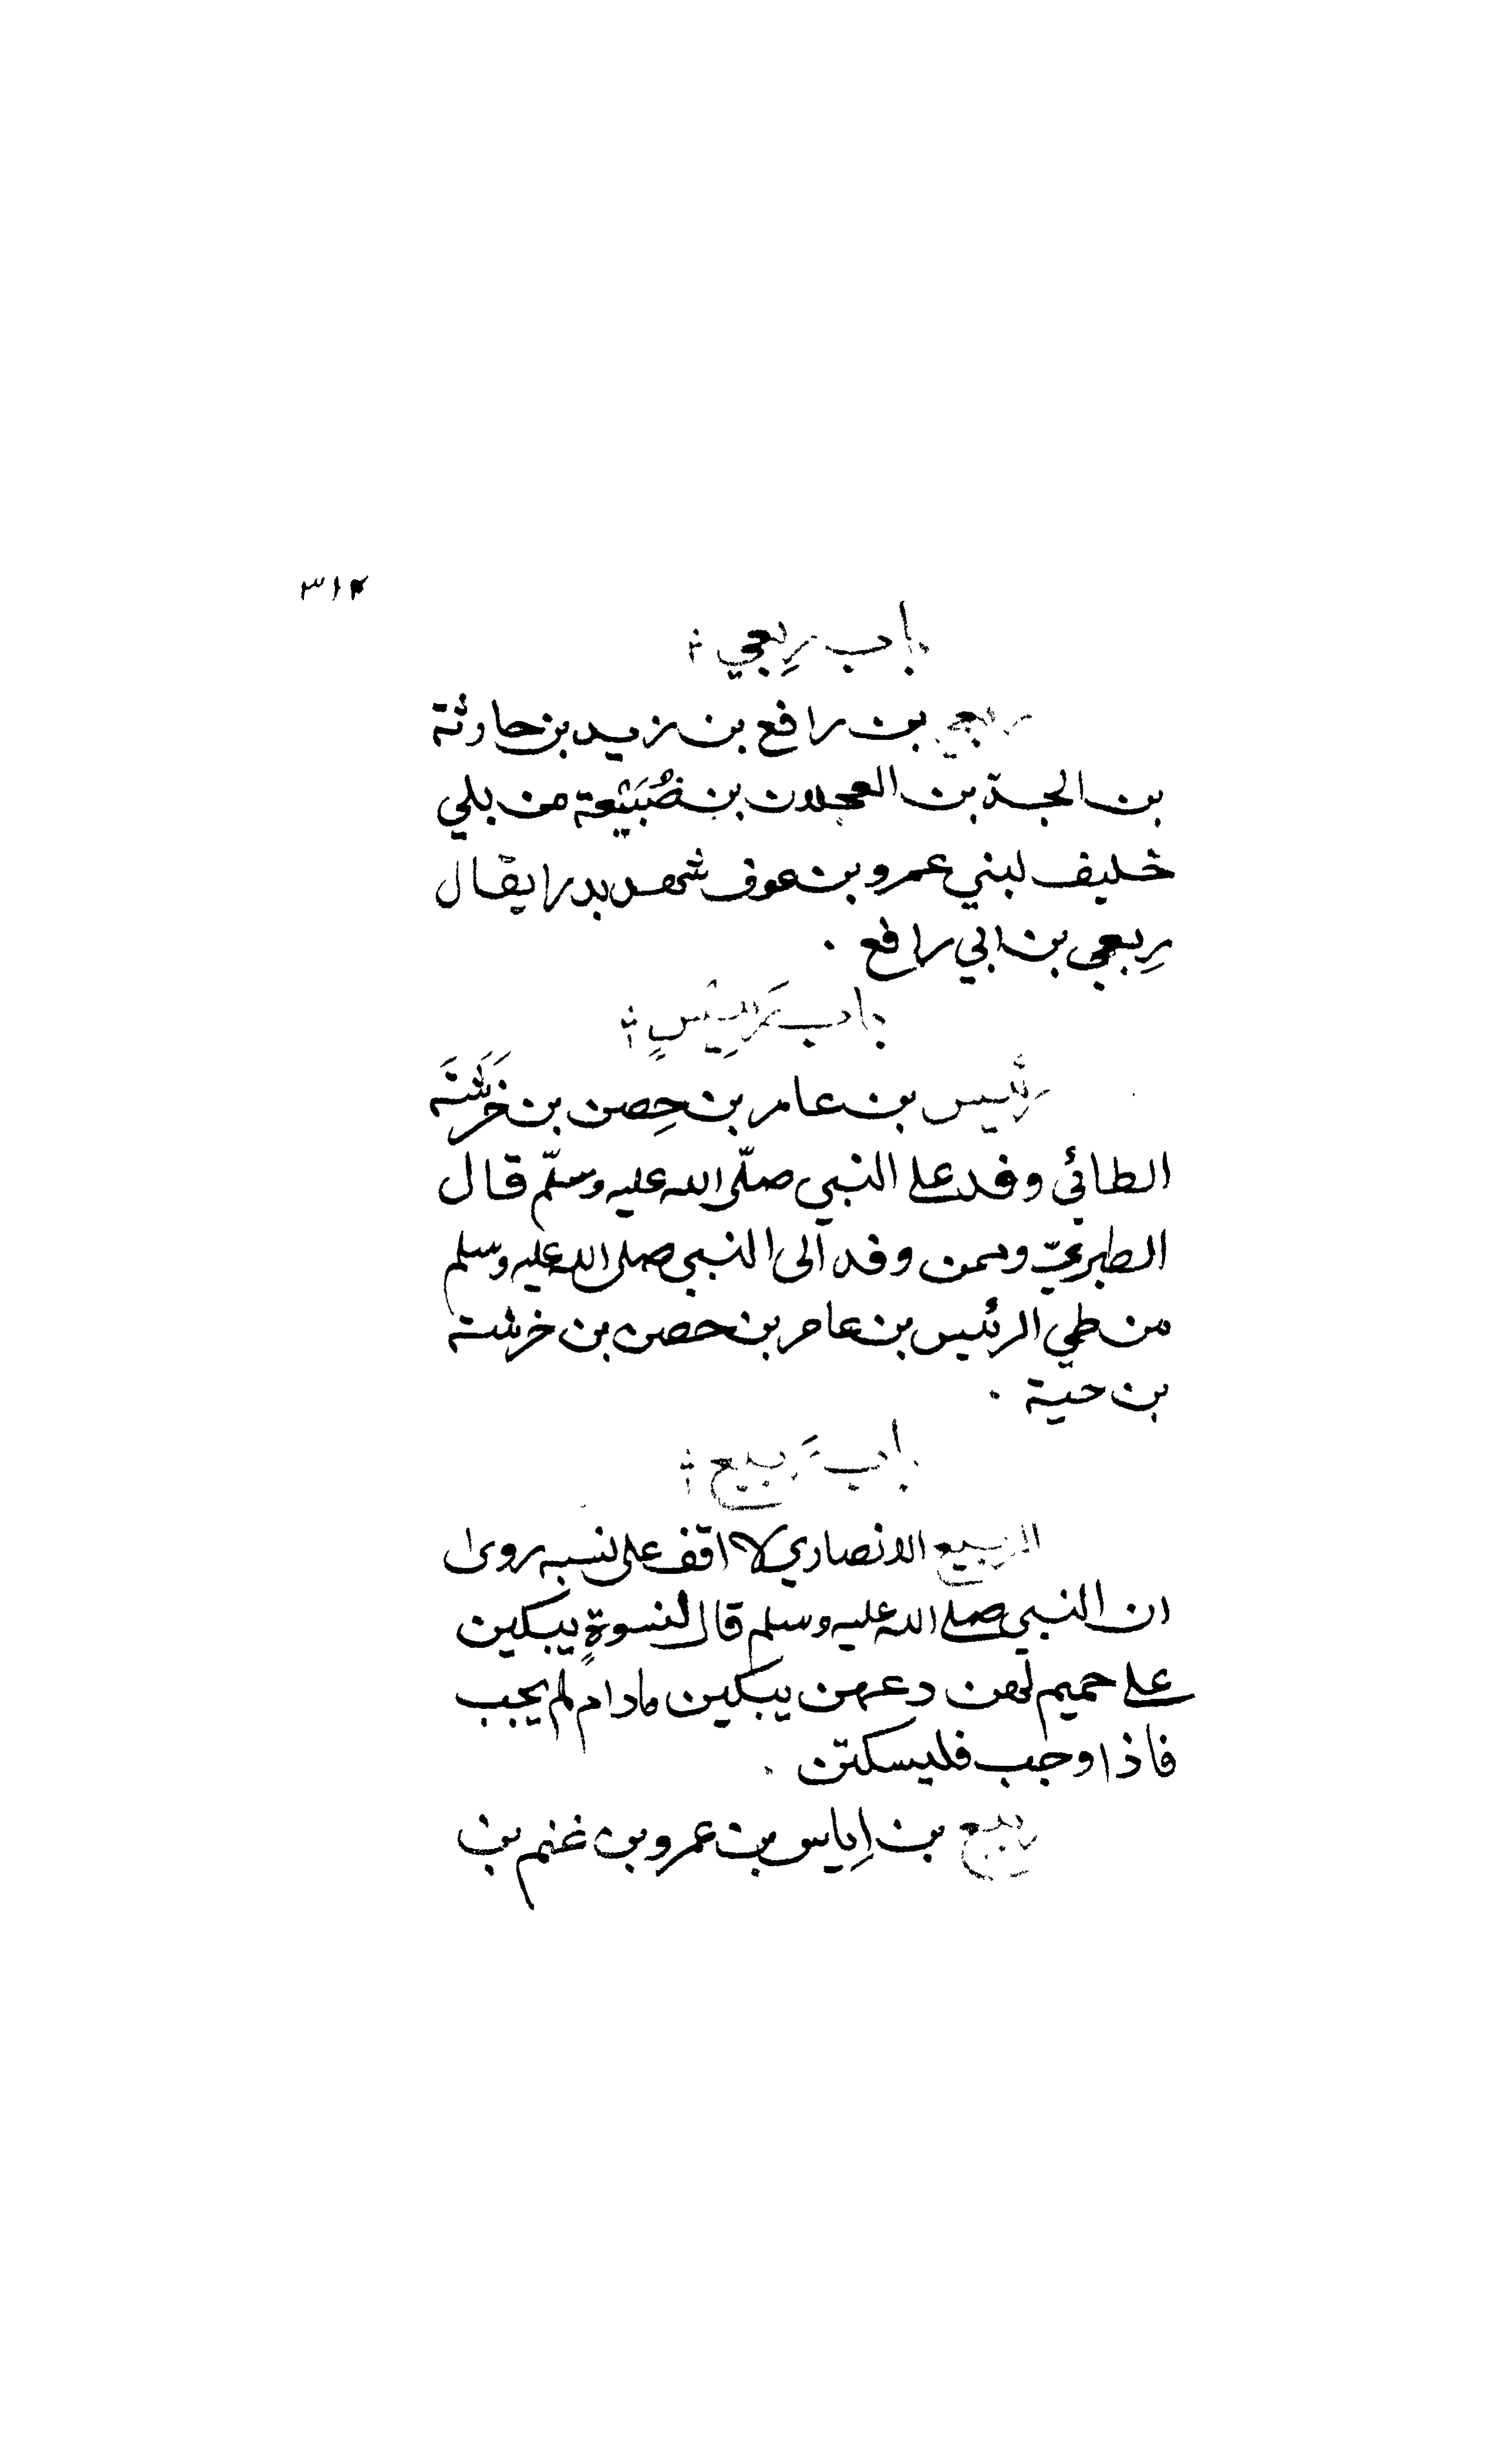 ٣١٢
باب رِبعي
ربعي بن رافع بن زيد بن حارثة
بن الجدّ بن العجلان بن ضُبَيْعة من بلي
خليف لبني عمرو بن عوف شهد بدرا يقال
رِبعي بن ابي رافع .
باب رَئِيسٍ
رئيس بن عامر بن حِصن بن خَرَشَة
الطائي وفد على النبي صلّى الله عليه وسلّم قال
الطبريّ وممن وفد الى النبي صلى الله عليه وسلم
من طي الرئيس بن عامر بن حصن بن خرشة
بن حية .
باب رَبيع
الربيع الانصاري لا اقف على نسبه روى
ان النبي صلى الله عليه وسلم قال لنسوةٍ يبكين
على حميم لهن دعهن يبكين مادام لم يجب
فاذا وجب فليسكتن .
ربيع بن اِياس بن عمرو بن غنم بن